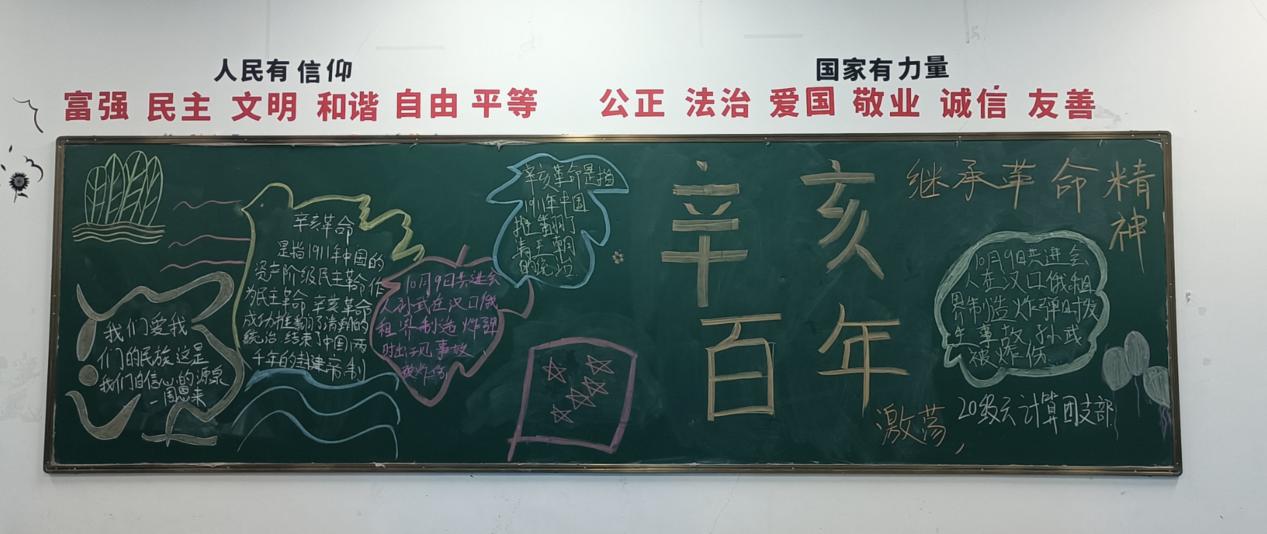 人民有信仰
国家有力量
富强 民主 文明 和谐 自由 平等
公正 法治 爱国 敬业 诚信 友善
我们爱我
们的民族,这是
我们的信心的源泉
—周恩来
辛亥革命
是指1911年中国的
资产阶级民主革命作
为民主革命,辛亥革命
成功推翻了清朝的
统治 结束了中国两
千年的封建帝制
10月9日共进会
人孙武在汉口俄
租界制造炸弹
时出现事故
被炸伤
辛亥革命是指
1911年中国
推翻了
清王朝
的统治
辛亥
百年
激荡
继承革命精
神
10月9日共进会
人在汉口俄租
界制造炸弹时发
生事故 孙武
被炸伤
20级云计算团支部